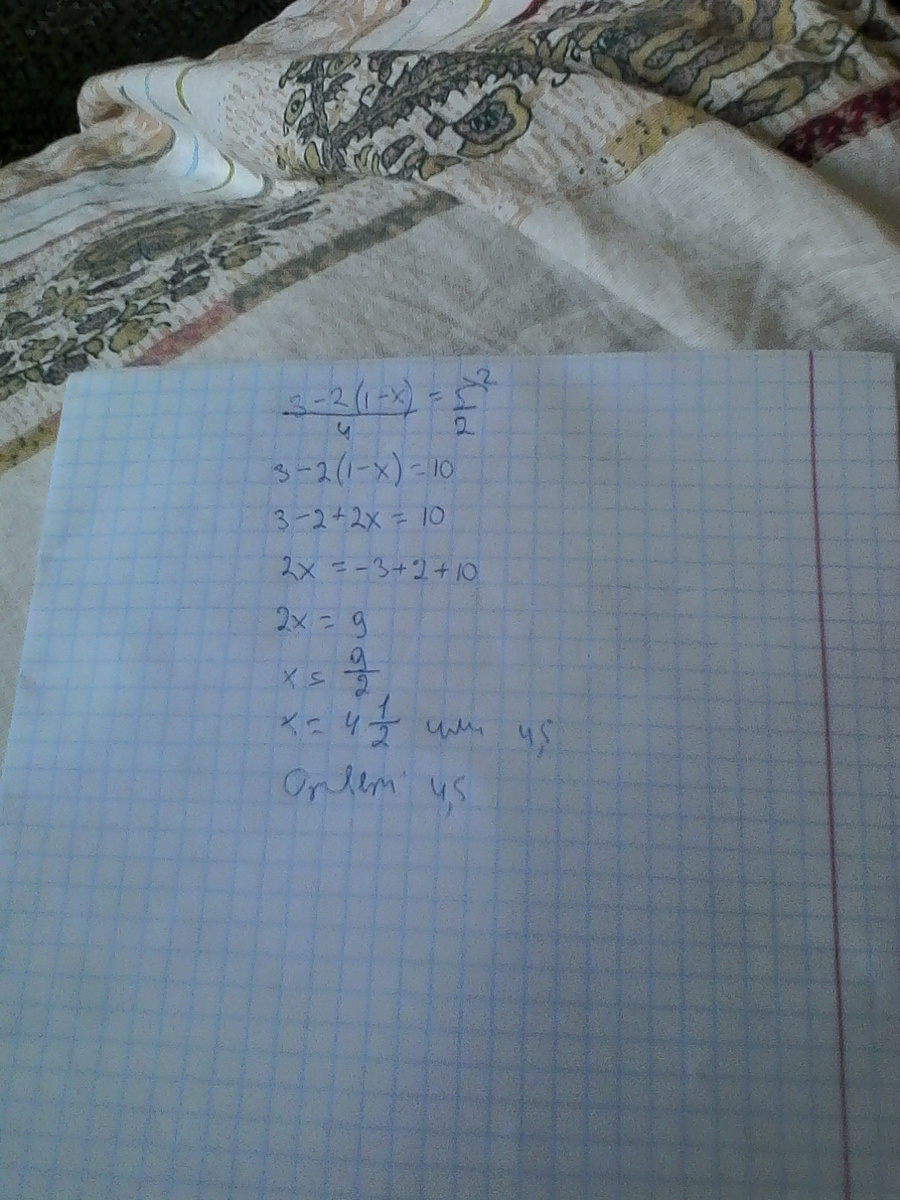 3-2(1-x)/4 = 5^2/2
3-2(1-x)=10
3-2+2x=10
2x=-3+2+10
2x=9
x=9/2
x=4 1/2 или 4,5
Ответ: 4,5